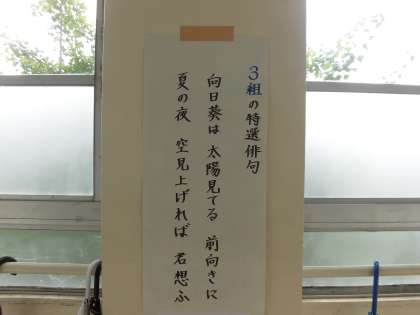 3組の特選俳句
向日葵は 太陽見てる 前向きに
夏の夜 空見上げれば 君想ふ